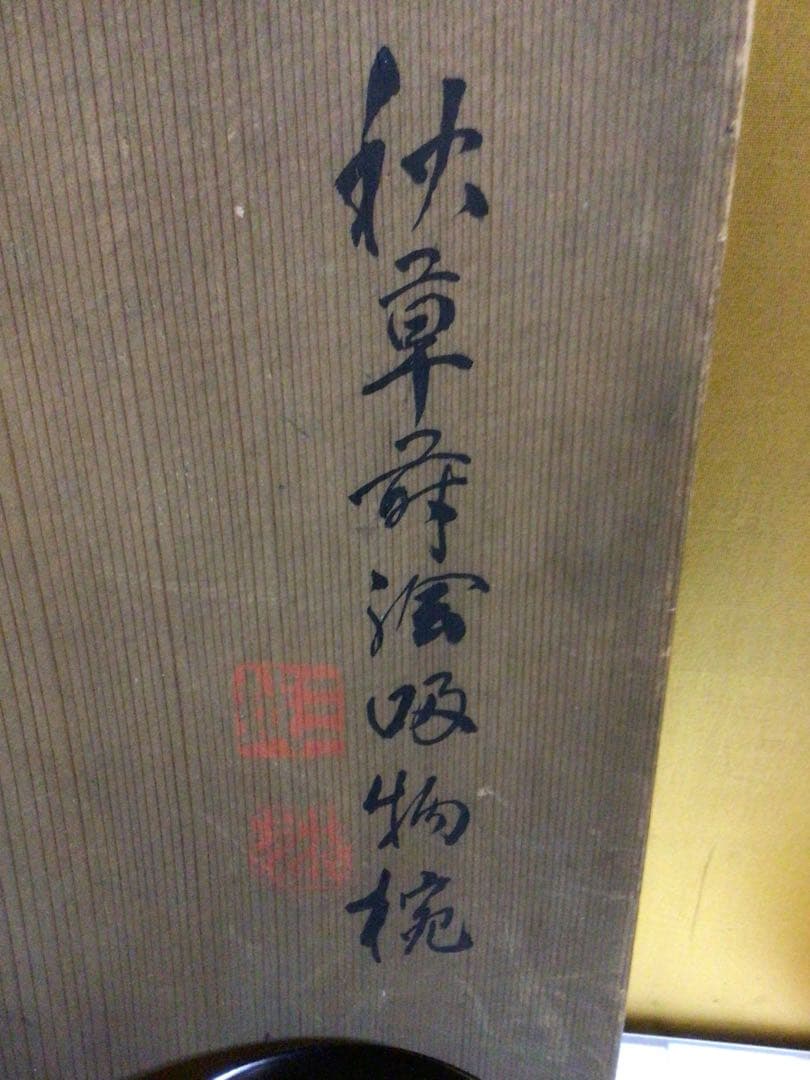 秋草蒔絵吸物椀